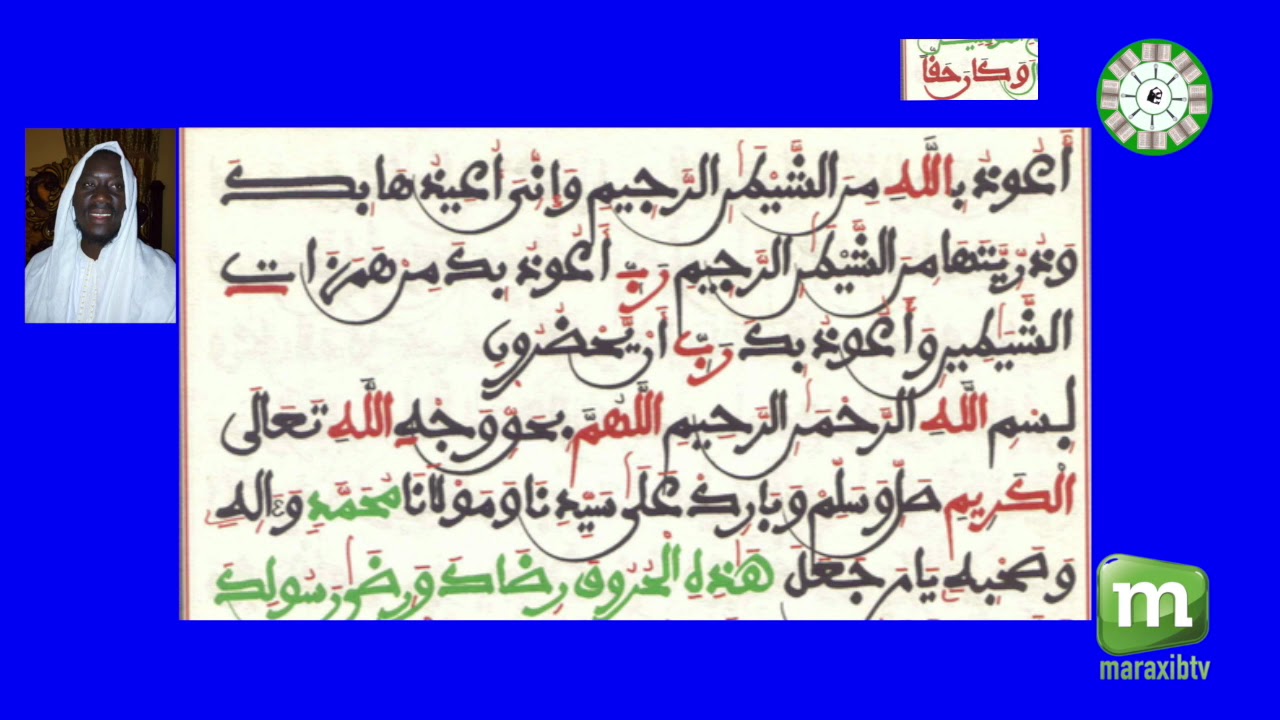 وَكَانَ حَقًّا
أَعُوذُ بِاللَّهِ مِنَ الشَّيْطَٰنِ الرَّجِيمِ وَإِنِّيَ أُعِيذُهَا بِكَ
وَذُرِّيَّتَهَا مِنَ الشَّيْطَٰنِ الرَّجِيمِ رَبِّ أَعُوذُ بِكَ مِنْ هَمَزَاتِ
الشَّيَٰطِينِ وَأَعُوذُ بِكَ رَبِّ أَنْ يَّحْضُرُونِ
بِسْمِ اللَّهِ الرَّحْمَٰنِ الرَّحِيمِ اللَّهُمَّ بِحَقِّ وَجْهِ اللَّهِ تَعَالَى
الْكَرِيمِ صَلِّ وَسَلِّمْ وَبَارِكْ عَلَىٰ سَيِّدِنَا وَمَوْلَانَا مُحَمَّدٍ وَءَالِهِ
وَصَحْبِهِ يَا مَن جَعَلَ هَٰذِهِ الْحُرُوفَ رِضَاكَ وَرِضَىٰ رَسُولِكَ
m
maraxibtv